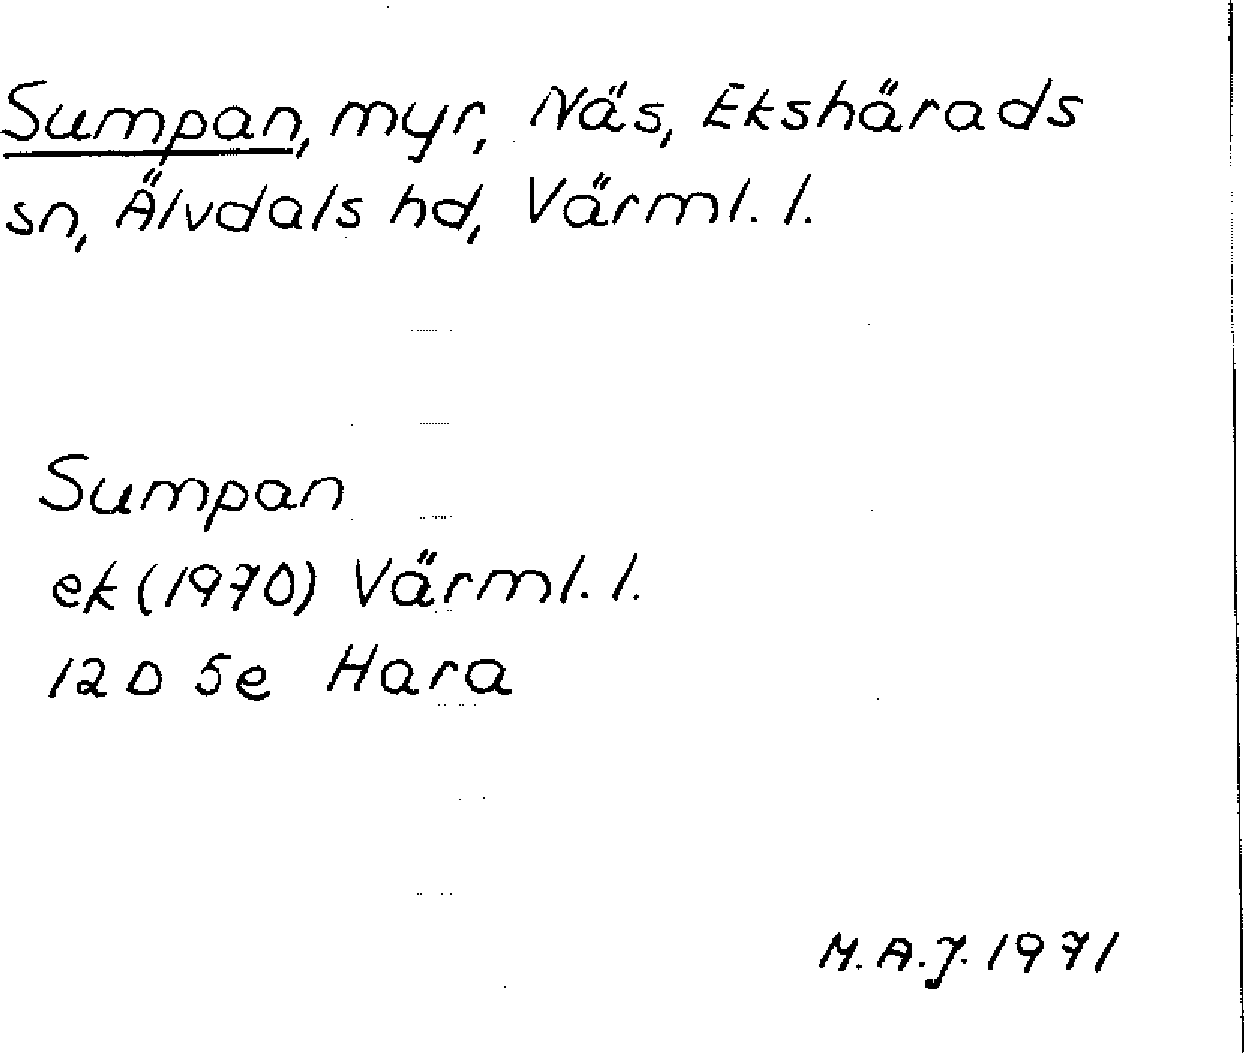 Sumpan, myr, Näs, Ekshärads
sn, Älvdals hd, Värml. l.
Sumpan
ek (1970) Värml. l.
12 D 5e Hara
M.A.J. 1971